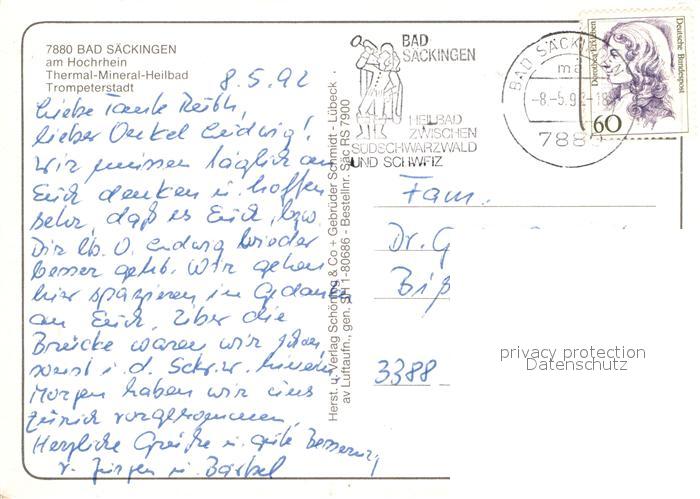 7880 BAD SÄCKINGEN
am Hochrhein
Thermal-Mineral-Heilbad
Trompeterstadt
8.5.92
Liebe Tante Ruth,
lieber Onkel Ludwig!
Wir müssen täglich an
Euch denken u. hoffen
sehr, daß es Euch, bzw.
Dir lb. O. Ludwig wieder
besser geht. Wir gehen
hier spazieren in Gedanken
an Euch, Über die
Brücke waren wir schon
sonst i. d. Schw. hinein
Morgen haben wir uns
Zürich vorgenommen,
Herzliche Grüße u. gute Besserung
v. Jürgen u. Bärbel
Herst. u. Verlag Schöning & Co + Gebrüder Schmidt - Lübeck
av Luftaufn., gen. SH 1-80686 - Bestellnr. Säc RS 7900
BAD
SÄCKINGEN
HEILBAD
ZWISCHEN
SÜDSCHWARZWALD
UND SCHWEIZ
BAD SÄCKINGEN
ma
-8.-5.92-18
788
Deutsche Bundespost
60
Fam.
Dr. G
Biß
3388
privacy protection
Datenschutz